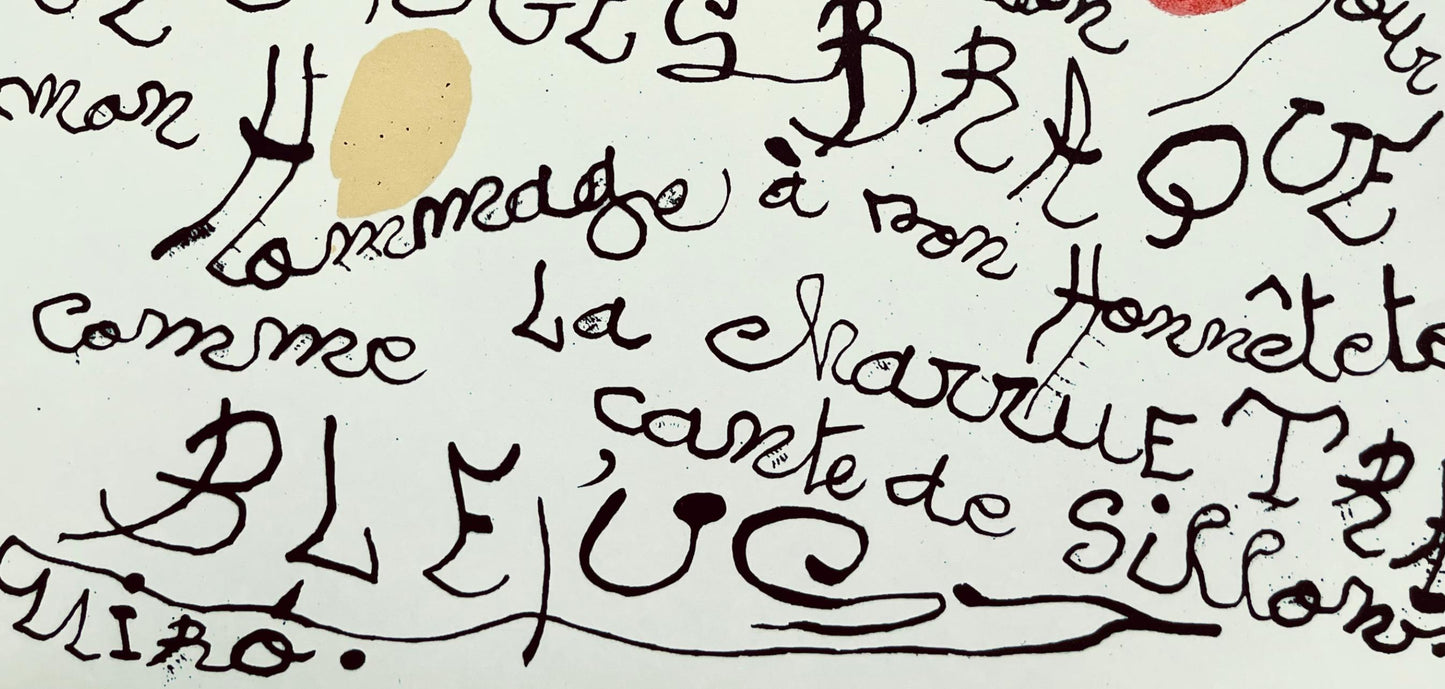 GES BRAQUE
mon Hommage à son Honnêteté
comme La charrue TRA
çante de Sillons
BLEUS
MIRO.